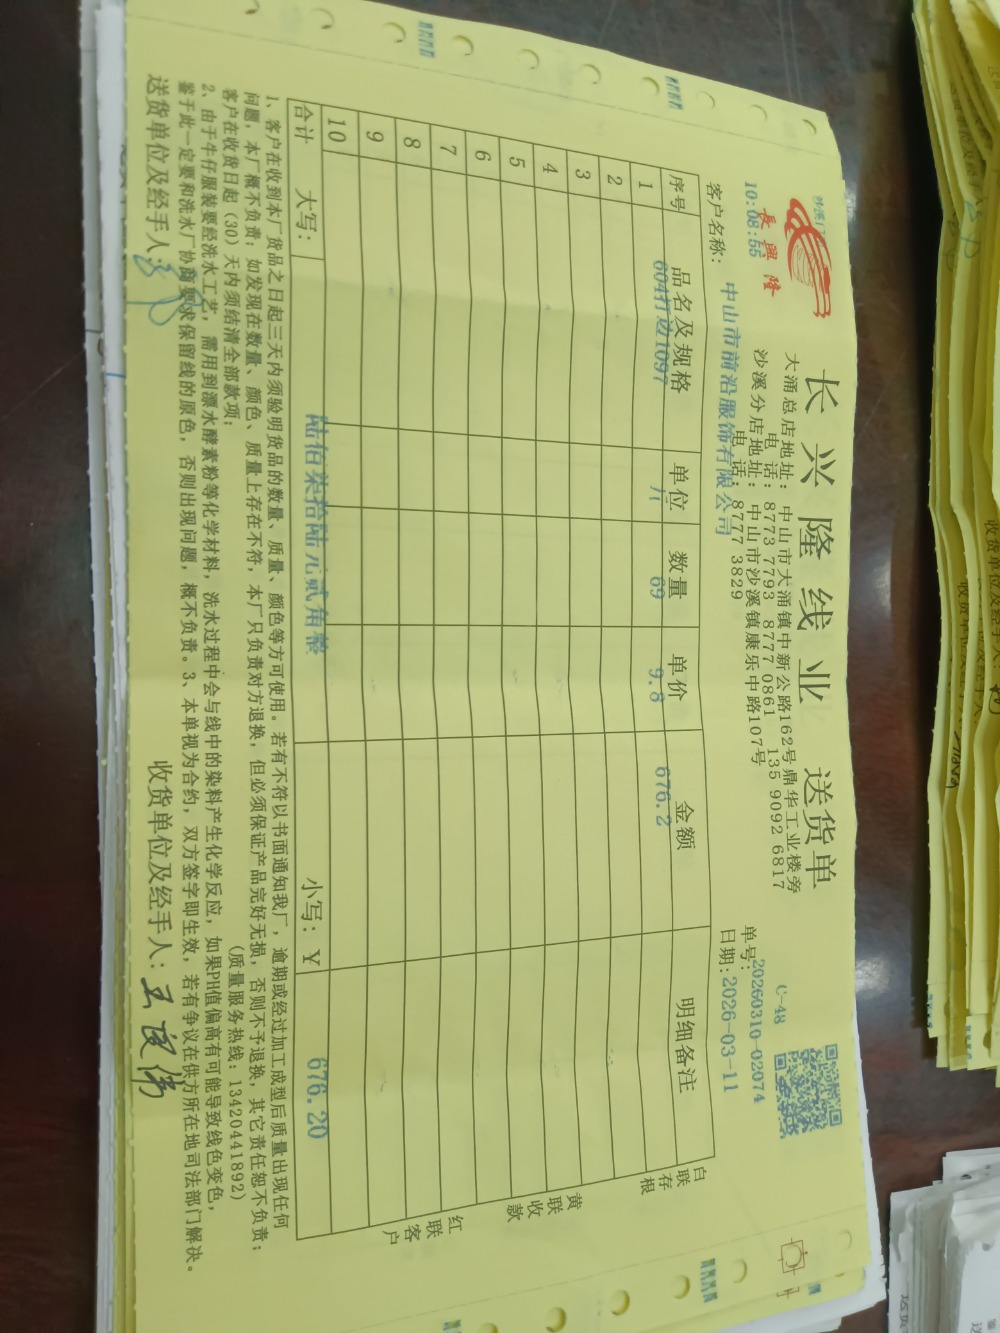 長興隆
10:08:55
长兴隆线业 送货单
大涌总店地址：中山市大涌镇中新公路162号鼎华工业楼旁
电 话：8773 7793 8777 0861 135 9092 6817
沙溪分店地址：中山市沙溪镇康乐中路107号
电 话：8777 3829
C-48
单号：20260310-02074
日期：2026-03-11
客户名称：中山市前沿服饰有限公司
序号 品名及规格 单位 数量 单价 金额 明细备注
1 604打边1097 69 9.8 676.2
2
3
4
5
6
7
8
9
10
合计 大写：陆佰柒拾陆元贰角整 小写：¥ 676.20
白联存根
黄联收款
红联客户
1、客户在收到本厂货品之日起三天内须验明货品的数量、质量、颜色等方可使用。若有不符以书面通知我厂，逾期或经过加工成型后质量出现任何
问题，本厂概不负责；如发现在数量、颜色、质量上存在不符，本厂只负责对方退换，但必须保证产品完好无损，否则不予退换，其它责任恕不负责；
客户在收货日起（30）天内须结清全部款项； （质量服务热线：13420441892）
2、由于牛仔服装要经洗水工艺，需用到漂水酵素粉等化学材料，洗水过程中会与线中的染料产生化学反应，如果PH值偏高有可能导致线色变色，
鉴于此一定要和洗水厂协商要求保留线的原色，否则出现问题，概不负责。3、本单视为合约，双方签字即生效，若有争议在供方所在地司法部门解决。
送货单位及经手人： 收货单位及经手人：王良伟